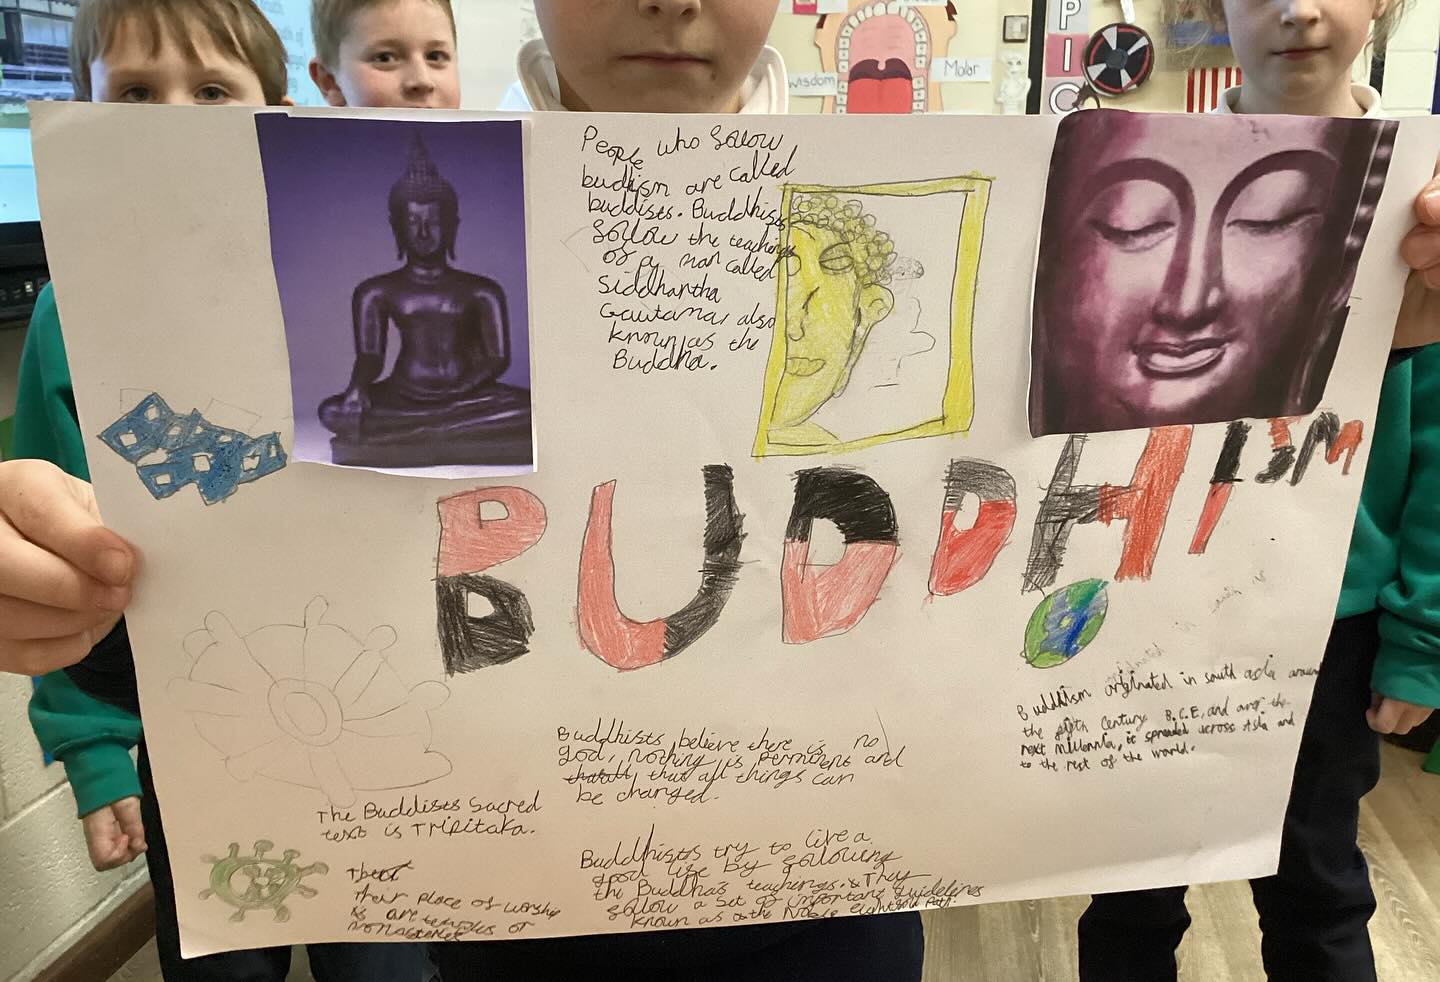 wisdom
Molar
P
I
C
People who follow
budhism are called
buddists. Buddhists
follow the teachings
of a man called
Siddhartha
Gautama, also
known as the
Buddha.
BUDDHISM
Buddhism originated in south asia around
the fifth Century B.C.E, and over the
next millennia, it spreaded across Asia and
to the rest of the world.
Buddhists believe there is no
god, nothing is permenent and
that all things can
be changed.
The Buddists Sacred
text is Tripitaka.
Their place of worship
is are temples or
monasteries
Buddhists try to live a
good life by following
the Buddha's teachings. They
follow a set of important guidelines
known as the Noble eightfold Path.